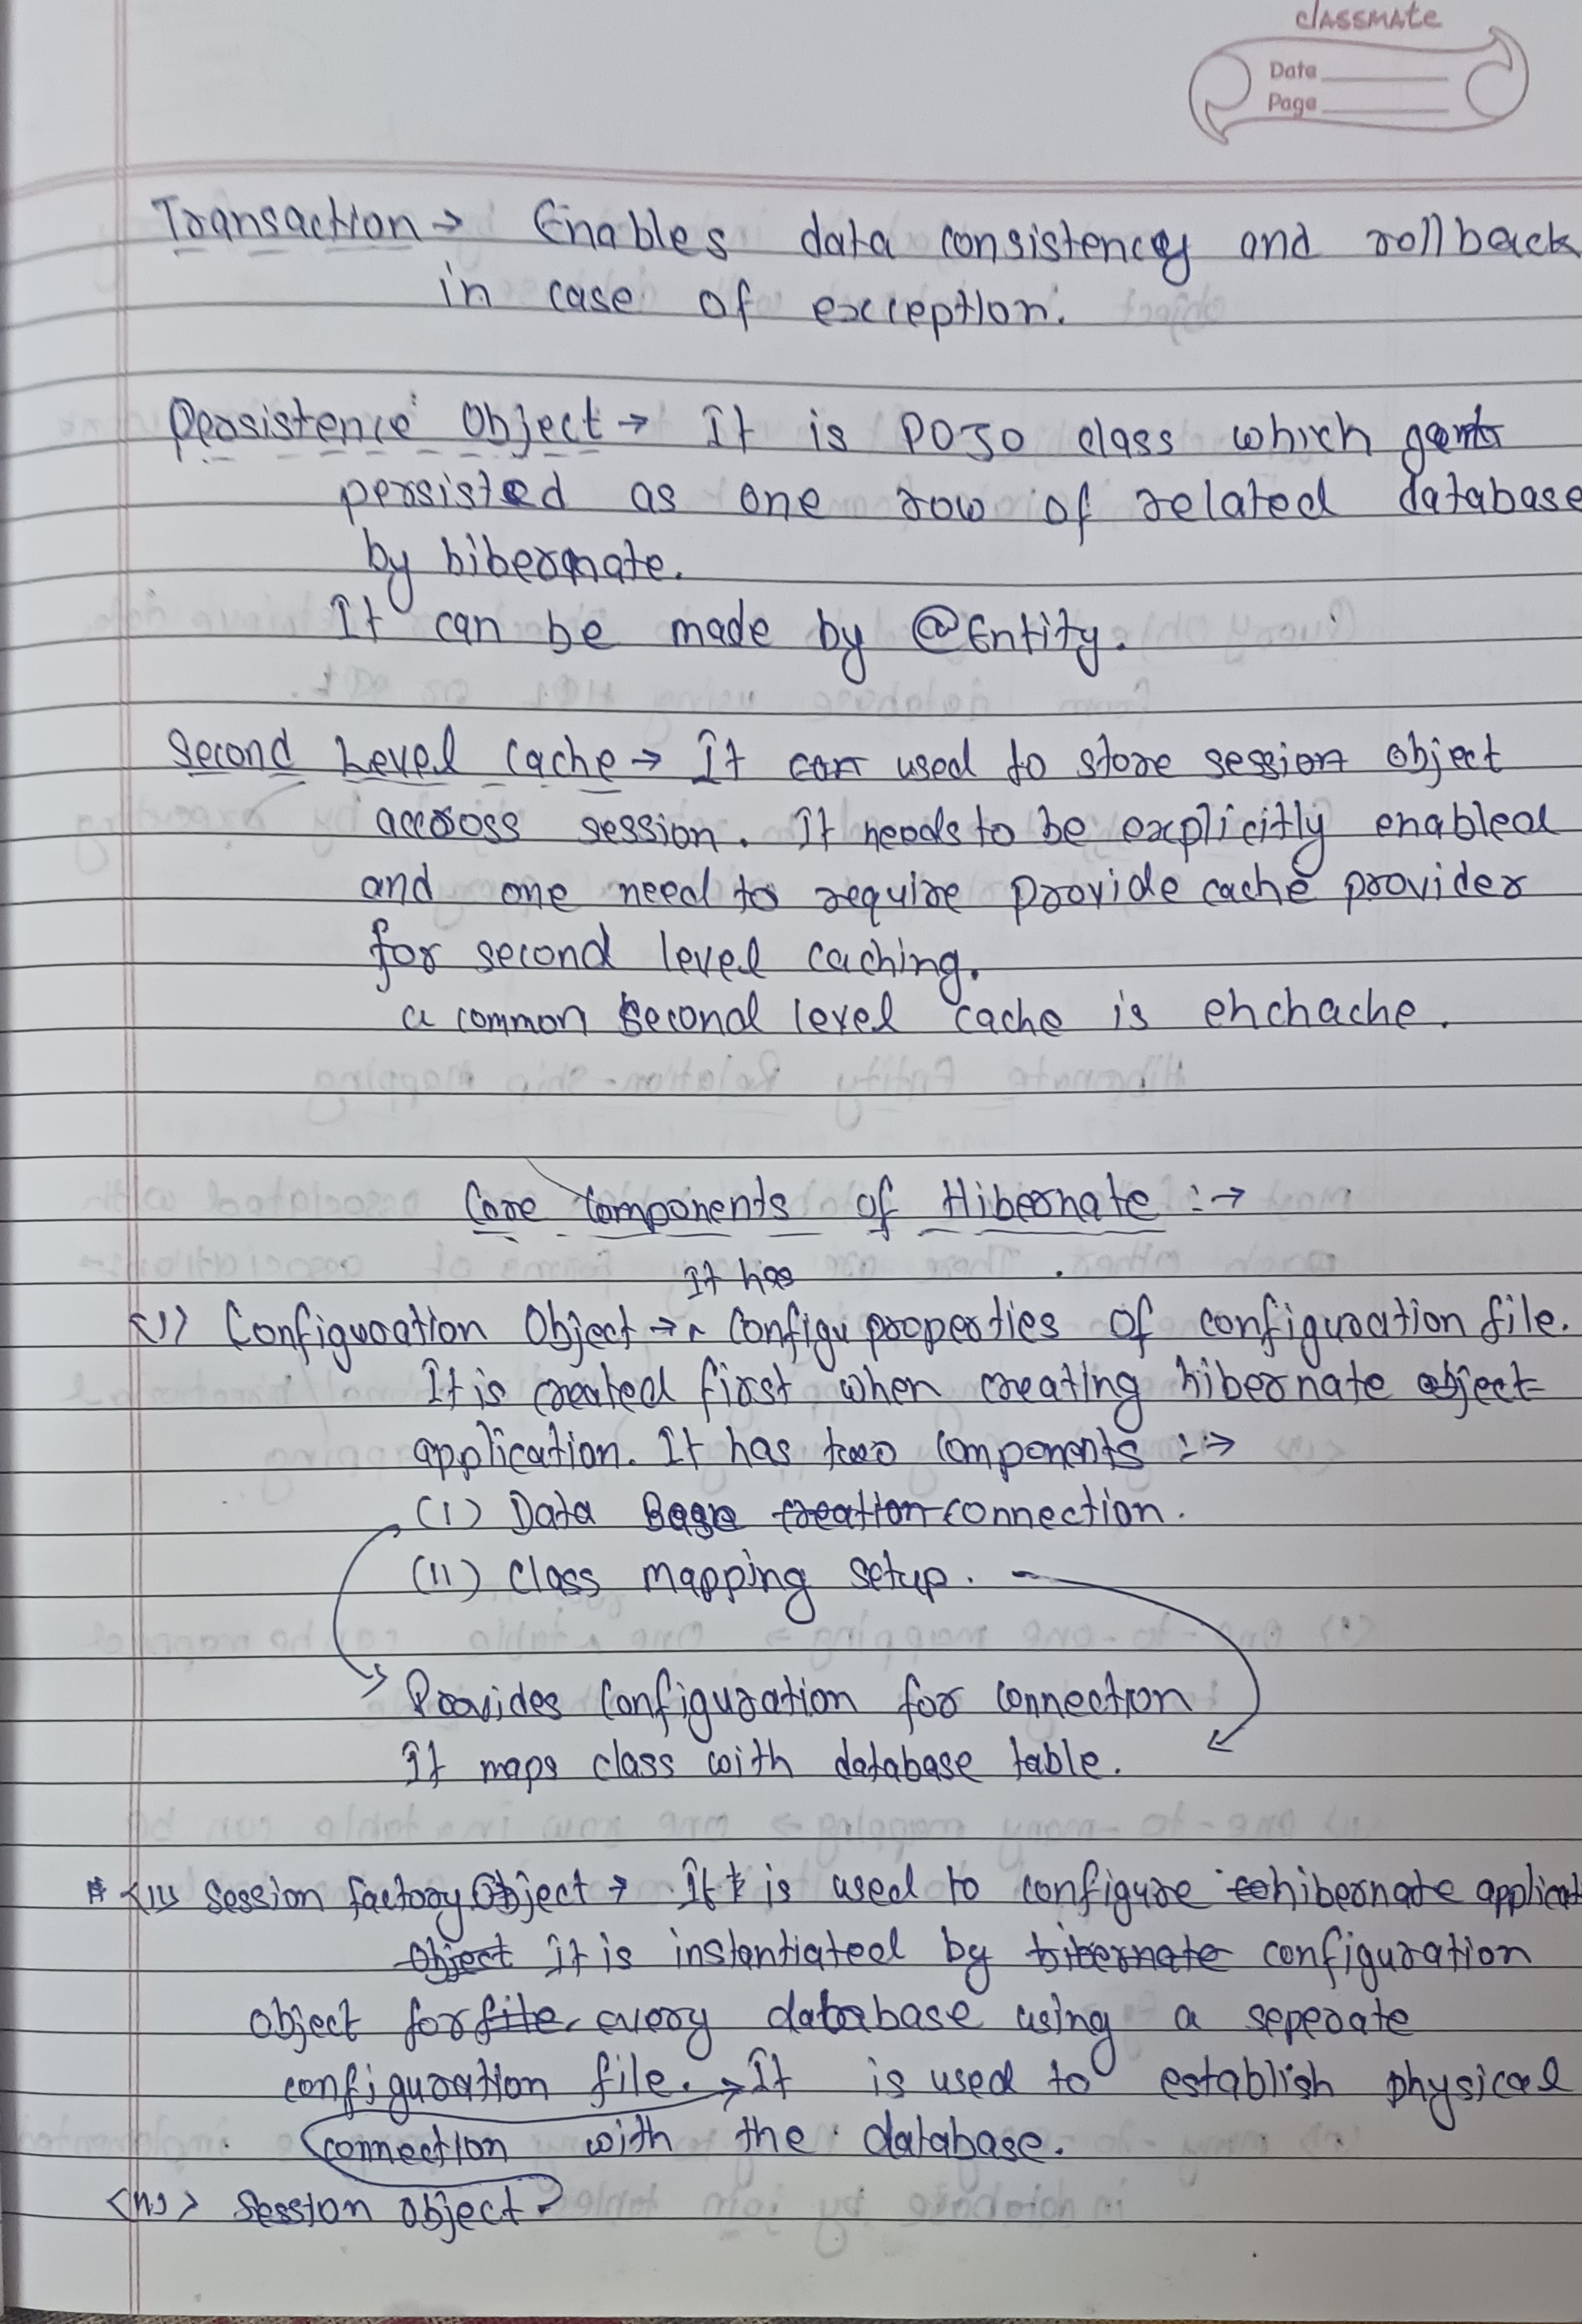 classmate
Date
Page
Transaction → Enables data consistency and rollback
in case of exception.
Persistence Object → It is POJO class which
persisted as one row of related database
by hibernate.
It can be made by @Entity.
Second Level Cache → It can used to store session object
accross session. It needs to be explicitly enabled
and one need to require provide cache provider
for second level caching.
a common second level cache is ehchache.
Core Components of Hibernate :→
It has
<I> Configuration Object → ^ Configu properties of configuration file.
It is created first when creating hibernate object
application. It has two components :→
(I) Data Base creation connection.
(II) Class mapping setup.
Provides configuration for connection
It maps class with database table.
# <II> Session factory Object → It is used to configure hibernate applicat
Object it is instantiated by hibernate configuration
object for file every database using a seperate
configuration file. → It is used to establish physical
connection with the database.
<III> Session object